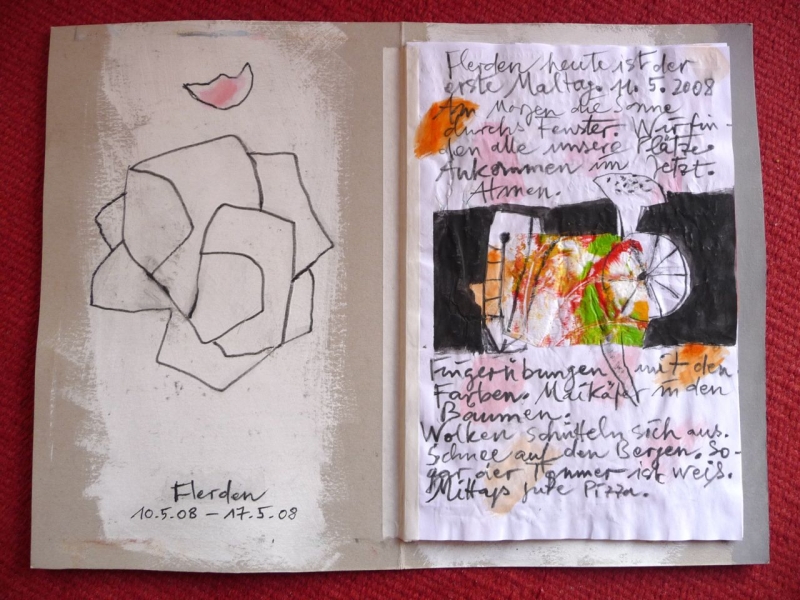 Flerden
10.5.08 – 17.5.08
Flerden heute ist der
erste Maltag. 11.5.2008
Am Morgen die Sonne
durchs Fenster. Wir fin-
den alle unsere Plätze.
Ankommen im Jetzt.
Atmen.
Fingerübungen mit den
Farben. Maikäfer in den
Bäumen.
Wolken schütteln sich aus.
Schnee auf den Bergen. So-
gar der ist weiß.
Mittags gute Pizza.